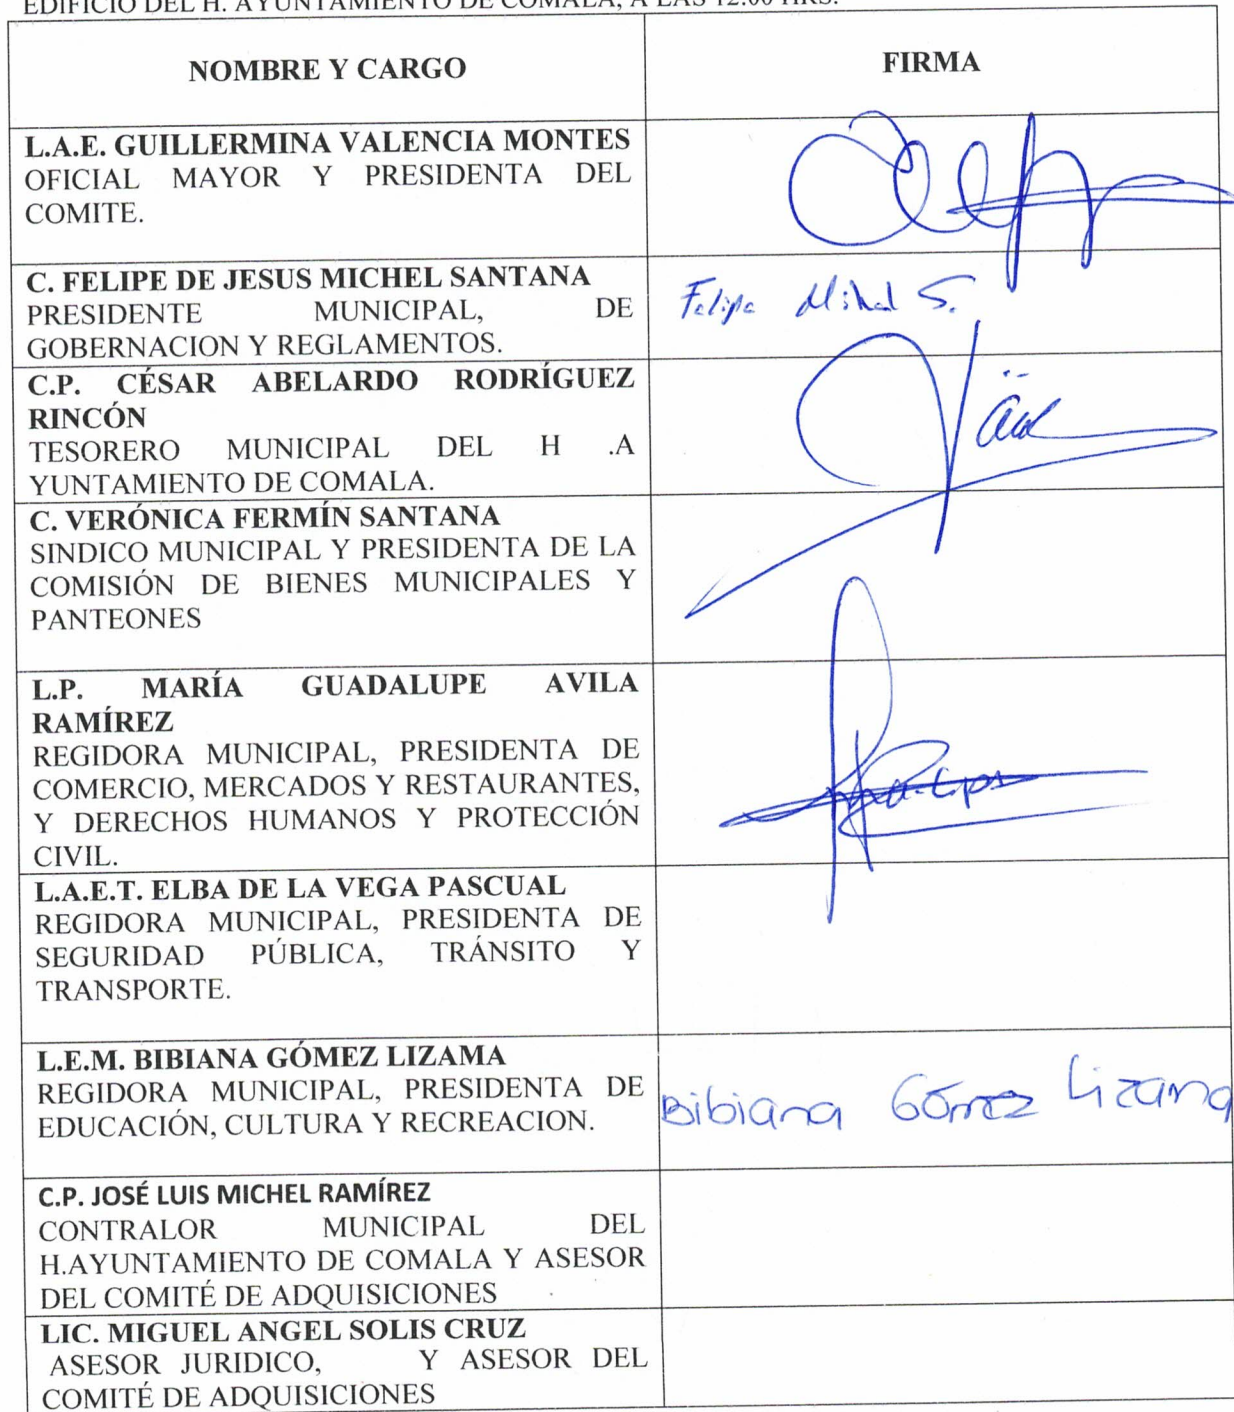 EDIFICIO DEL H. AYUNTAMIENTO DE COMALA, A LAS 12:00 HRS.
NOMBRE Y CARGO
FIRMA
L.A.E. GUILLERMINA VALENCIA MONTES
OFICIAL MAYOR Y PRESIDENTA DEL
COMITE.
C. FELIPE DE JESUS MICHEL SANTANA
PRESIDENTE MUNICIPAL, DE
GOBERNACION Y REGLAMENTOS.
Felipe Michel S.
C.P. CÉSAR ABELARDO RODRÍGUEZ
RINCÓN
TESORERO MUNICIPAL DEL H .A
YUNTAMIENTO DE COMALA.
C. VERÓNICA FERMÍN SANTANA
SINDICO MUNICIPAL Y PRESIDENTA DE LA
COMISIÓN DE BIENES MUNICIPALES Y
PANTEONES
L.P. MARÍA GUADALUPE AVILA
RAMÍREZ
REGIDORA MUNICIPAL, PRESIDENTA DE
COMERCIO, MERCADOS Y RESTAURANTES,
Y DERECHOS HUMANOS Y PROTECCIÓN
CIVIL.
L.A.E.T. ELBA DE LA VEGA PASCUAL
REGIDORA MUNICIPAL, PRESIDENTA DE
SEGURIDAD PÚBLICA, TRÁNSITO Y
TRANSPORTE.
L.E.M. BIBIANA GÓMEZ LIZAMA
REGIDORA MUNICIPAL, PRESIDENTA DE
EDUCACIÓN, CULTURA Y RECREACION.
Bibiana Gómez Lizama
C.P. JOSÉ LUIS MICHEL RAMÍREZ
CONTRALOR MUNICIPAL DEL
H.AYUNTAMIENTO DE COMALA Y ASESOR
DEL COMITÉ DE ADQUISICIONES
LIC. MIGUEL ANGEL SOLIS CRUZ
ASESOR JURIDICO, Y ASESOR DEL
COMITÉ DE ADQUISICIONES